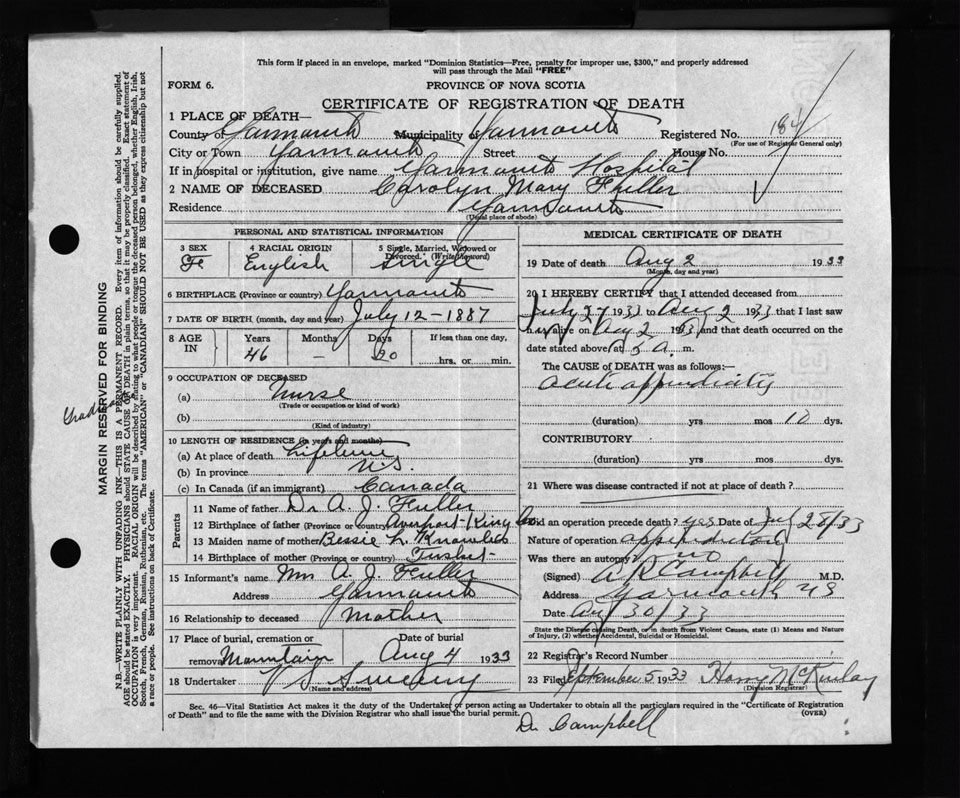 This form if placed in an envelope, marked "Dominion Statistics—Free, penalty for improper use, $300," and properly addressed
will pass through the Mail "FREE"
FORM 6.
PROVINCE OF NOVA SCOTIA
CERTIFICATE OF REGISTRATION OF DEATH
1 PLACE OF DEATH—
County of Yarmouth Municipality of Yarmouth Registered No. 184
(For use of Registrar General only)
City or Town Yarmouth Street House No.
If in hospital or institution, give name Yarmouth Hospital
2 NAME OF DECEASED Carolyn Mary Fuller
Residence Yarmouth
(Usual place of abode)
PERSONAL AND STATISTICAL INFORMATION
3 SEX 4 RACIAL ORIGIN 5 Single, Married, Widowed or
Divorced. (Write the word)
Fe English Single
6 BIRTHPLACE (Province or country) Yarmouth
7 DATE OF BIRTH (month, day and year) July 12-1887
8 AGE IN Years Months Days If less than one day,
46 — 20 hrs. or min.
9 OCCUPATION OF DECEASED
(a) Nurse
(Trade or occupation or kind of work)
(b)
(Kind of industry)
10 LENGTH OF RESIDENCE (in years and months)
(a) At place of death Lifetime
(b) In province N.S.
(c) In Canada (if an immigrant) Canada
Parents
11 Name of father Dr A. J. Fuller
12 Birthplace of father (Province or country) Avonport-Kings Co.
13 Maiden name of mother Bessie L. Knowles
14 Birthplace of mother (Province or country) Tusket-
15 Informant's name Mrs A. J. Fuller
Address Yarmouth
16 Relationship to deceased Mother
17 Place of burial, cremation or Date of burial
removal Mountain Aug 4 1933
18 Undertaker V S Sweeny
(Name and address)
MEDICAL CERTIFICATE OF DEATH
19 Date of death Aug 2 1933
(Month, day and year)
20 I HEREBY CERTIFY that I attended deceased from
July 27 1933 to Aug 2 1933 that I last saw
her alive on Aug 2 1933 and that death occurred on
date stated above at 5 a. m.
The CAUSE OF DEATH was as follows:—
acute appendicitis
(duration) yrs mos 10 dys.
CONTRIBUTORY
(duration) yrs mos dys.
21 Where was disease contracted if not at place of death?
Did an operation precede death? yes Date of Jul 28/33
Nature of operation
Was there an autopsy no
(Signed) A R Campbell M.D.
Address Yarmouth NS
Date Aug 30/33
State the Disease causing Death, or in death from Violent Causes, state (1) Means and Nature
of Injury, (2) whether Accidental, Suicidal or Homicidal.
22 Registrar's Record Number
23 Filed September 5 1933 Harry McKinlay
(Division Registrar)
Sec. 46—Vital Statistics Act makes it the duty of the Undertaker or person acting as Undertaker to obtain all the particulars required in the "Certificate of Registration
of Death" and to file the same with the Division Registrar who shall issue the burial permit.
(OVER)
Dr. Campbell
MARGIN RESERVED FOR BINDING
N.B.—WRITE PLAINLY WITH UNFADING INK—THIS IS A PERMANENT RECORD. Every item of information should be carefully supplied.
AGE should be stated EXACTLY. PHYSICIANS should STATE CAUSE OF DEATH in plain terms, so that it may be properly classified. Exact statement of
OCCUPATION is very important. RACIAL ORIGIN will be described by stating to what people or tongue the deceased person belonged, whether English, Irish,
Scotch, French, German, Russian, Ruthenian, etc. The terms "AMERICAN" or "CANADIAN" SHOULD NOT BE USED as they express citizenship but not
a race or people. See instructions on back of Certificate.